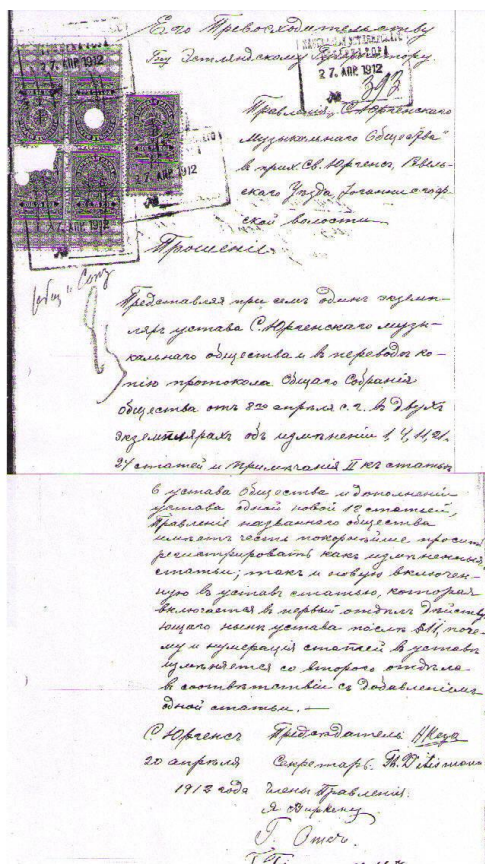 Его Превосходительству
Гну Эстляндскому Губернатору.
27. АПР. 1912
27. АПР. 1912
393
Правленія „С. Юргенскаго
Музыкальнаго Общества"
в прих. Св. Юргенс, Ревель-
скаго Уѣзда,
ской волости
Прошеніе
Представляя при семъ одинъ экземп-
ляръ устава С. Юргенскаго музы-
кальнаго общества и в переводѣ ко-
пію протокола Общаго Собранія
общества отъ 8го апрѣля с. г. в двухъ
экземплярахъ объ измѣненіи 1, 4, 11, 21,
24 статей и примѣчанія II къ статьѣ
6 устава общества и дополненіи
устава одной новой 12 статьей,
Правленіе названнаго общества
имѣетъ честь покорнѣйше просить
регистрировать какъ измѣненныя
статьи, такъ и новую включен-
ную в уставъ статью, которая
включается в первый отдѣлъ дѣйству-
ющаго нынѣ устава послѣ §11, поче-
му и нумерація статей в уставѣ
измѣняется со второго отдѣла
в соотвѣтствіи съ добавленіемъ
одной статьи. —
С Юргенсъ Предсѣдатель
20 апрѣля Секретарь
1912 года Члены Правленія: